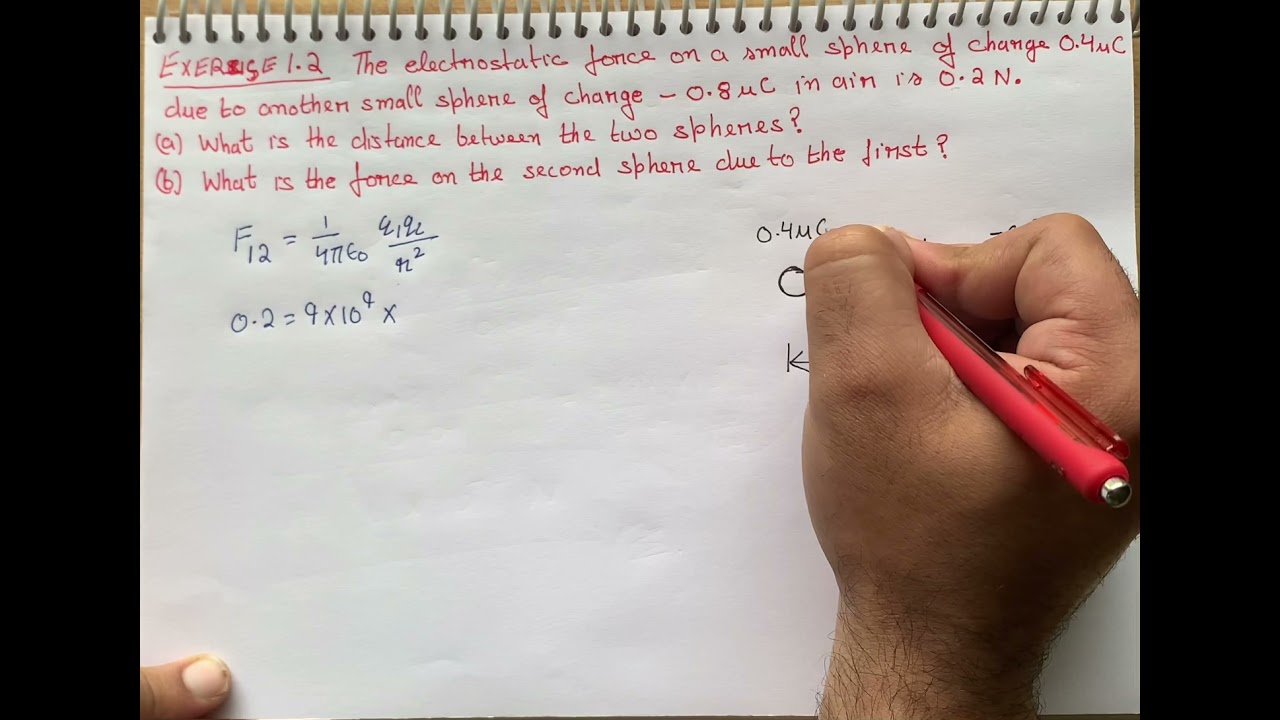 EXERCISE 1.2 The electrostatic force on a small sphere of charge 0.4μC
due to another small sphere of charge - 0.8μC in air is 0.2 N.
(a) What is the distance between the two spheres?
(b) What is the force on the second sphere due to the first?
F₁₂ = 1/4πϵ₀ q₁q₂/r²
0.4μC
0.2 = 9×10⁹ ×